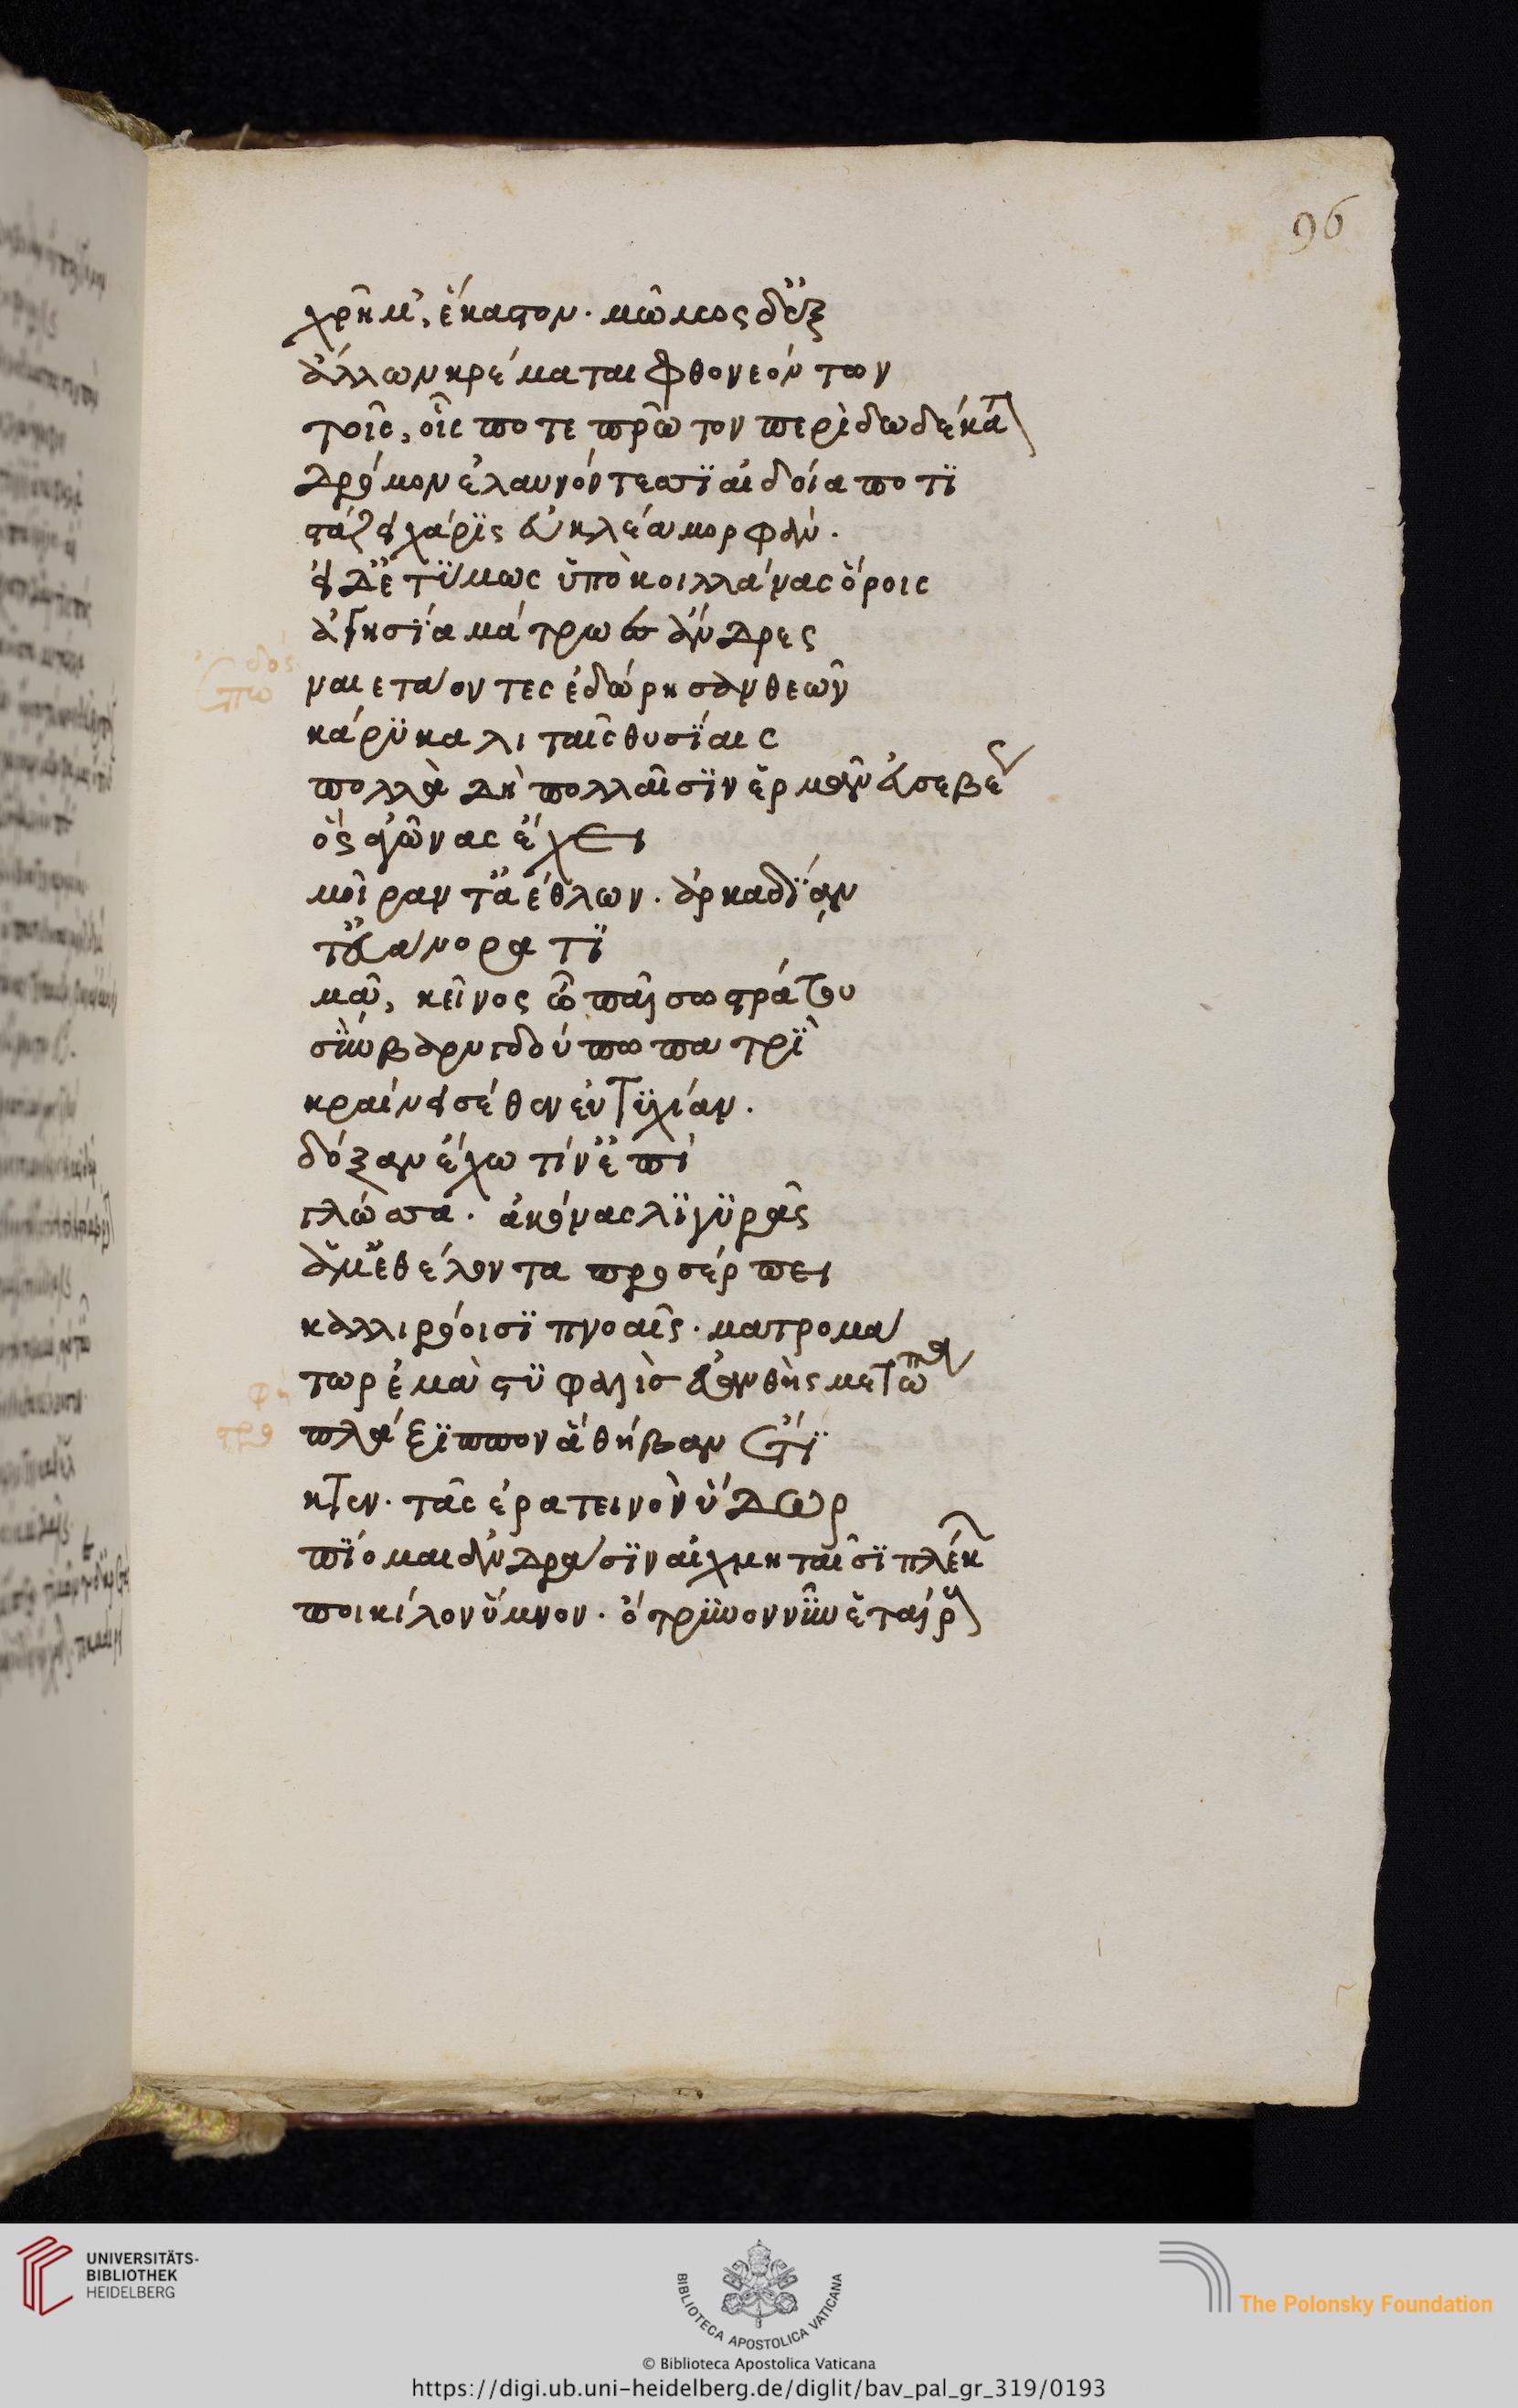 96
χρῆμ', ἕκαστον. μῶμος δ' ἐξ
ἄλλων κρέμαται φθονεόντων
τοῖς, οἷς ποτε πρῶτον περὶ δωδέκατ
δρόμον ἐλαυνόντεσσϊ αἰδοία ποτϊ
στάζει χάρϊς εὐκλέα μορφάν.
εἰ δ' ἐτΰμως ὑπὸ κοιλλάνας ὄροις
ἁγησΐα μάτρωες ἄνδρες
ναιετάοντες ἐδώρησαν θεῶν
κάρϋκα λιταῖς θυσΐαις
πολλὰ δὴ πολλαῖσϊν ἑρμᾶν εὐσεβέως
ὃς ἀγῶνας ἔχει
μοῖραν τ' ἀέθλων. ἀρκαδΐαν
τ' εὐάνορα τϊ
μᾶ, κεῖνος ὦ παῖ σωστράτου
σὺν βαρυγδούπω πατρῒ
κραίνει σέθεν εὐτϋχίαν.
δόξαν ἔχω τίν' ἐπὶ
γλώσσα. ἀκόνας λϊγϋρᾶς
ἅ μ' ἐθέλοντα προσέρπει
καλλιρόοισϊ πνοαῖς. ματρομά
τωρ ἐμὰ στϋφαλὶς εὐανθὴς μετώπα
πλάξϊππον ἃ θήβαν ἔτϊ
κτεν. τᾶς ἐρατεινὸν ὕδωρ
πΐομαι ἀνδράσϊν αἰχμηταῖσϊ πλέκων
ποικίλον ὕμνον. ὄτρϋνον νῦν ἑταίρους
UNIVERSITÄTS-
BIBLIOTHEK
HEIDELBERG
BIBLIOTECA APOSTOLICA VATICANA
The Polonsky Foundation
© Biblioteca Apostolica Vaticana
https://digi.ub.uni-heidelberg.de/diglit/bav_pal_gr_319/0193